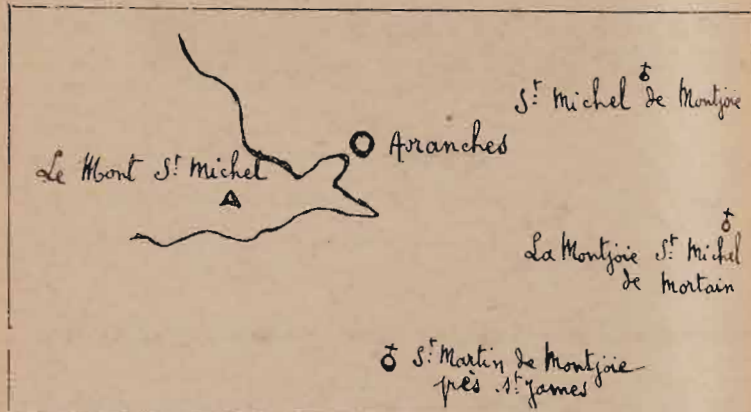 St Michel de Montjoie
Avranches
Le Mont St Michel
La Montjoie St Michel
de Mortain
St Martin de Montjoie
près St James